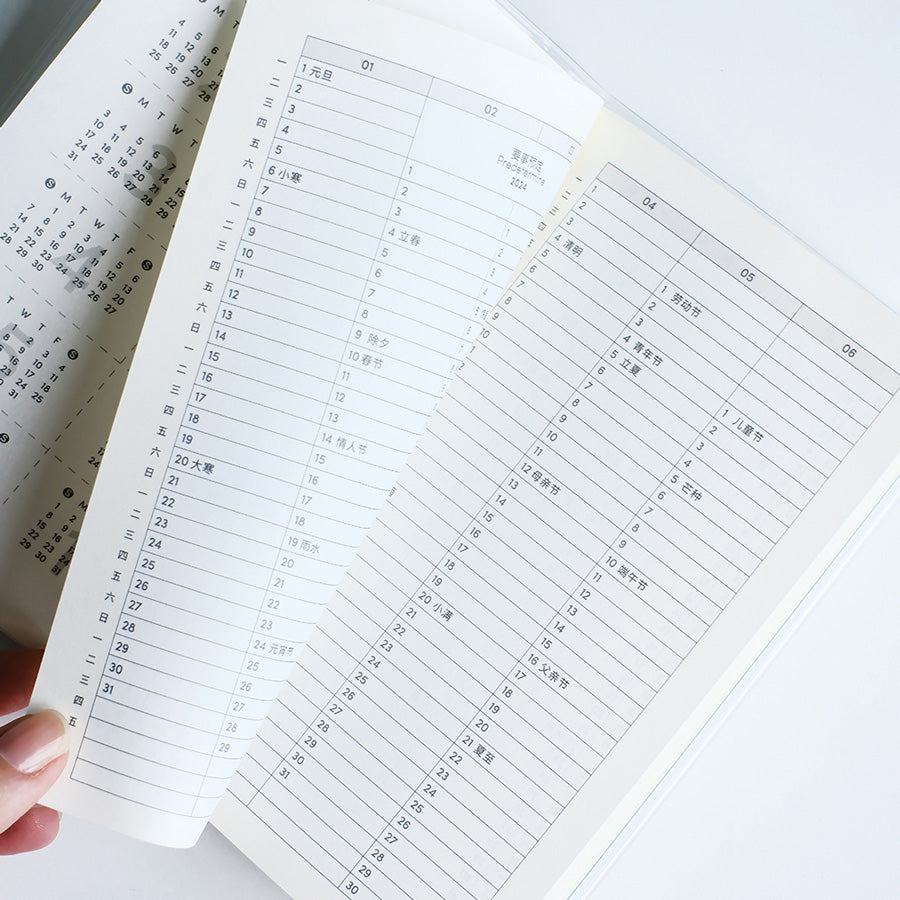 M T
4 5 6
11 12 13
18 19 20 21
25 26 27 28
S M T W T
3 4 5 6
10 11 12 13
17 18 19 20
24 25 26 27
31
S M T W T F S
1 2 3 4 5 6
7 8 9 10 11 12 13
14 15 16 17 18 19 20
21 22 23 24 25 26
28 29 30
T W T F S
1 2 3 4
8 9 10 11
21 22 23 24 25
31
01
一 1 元旦
二 2
三 3
四 4
五 5
六 6 小寒
日 7
一 8
二 9
三 10
四 11
五 12
六 13
日 14
一 15
二 16
三 17
四 18
五 19
六 20 大寒
日 21
一 22
二 23
三 24
四 25
五 26
六 27
日 28
一 29
二 30
三 31
四
五
02
1
2
3
4 立春
5
6
7
8
9 除夕
10 春节
11
12
13
14 情人节
15
16
17
18
19 雨水
20
21
22
23
24 元宵节
25
26
27
28
29
要事预定
Predetermine
2024
04
一 1
二 2
三 3
四 4 清明
5
6
7
8
9
10
05
1 劳动节
2
3
4 青年节
5 立夏
6
7
8
9
10
11
12 母亲节
13
14
15
16
17
18
19
20 小满
21
22
23
24
25
26
27
28
29
30
31
06
1 儿童节
2
3
4
5 芒种
6
7
8
9
10 端午节
11
12
13
14
15
16 父亲节
17
18
19
20
21 夏至
22
23
24
25
26
27
28
29
30